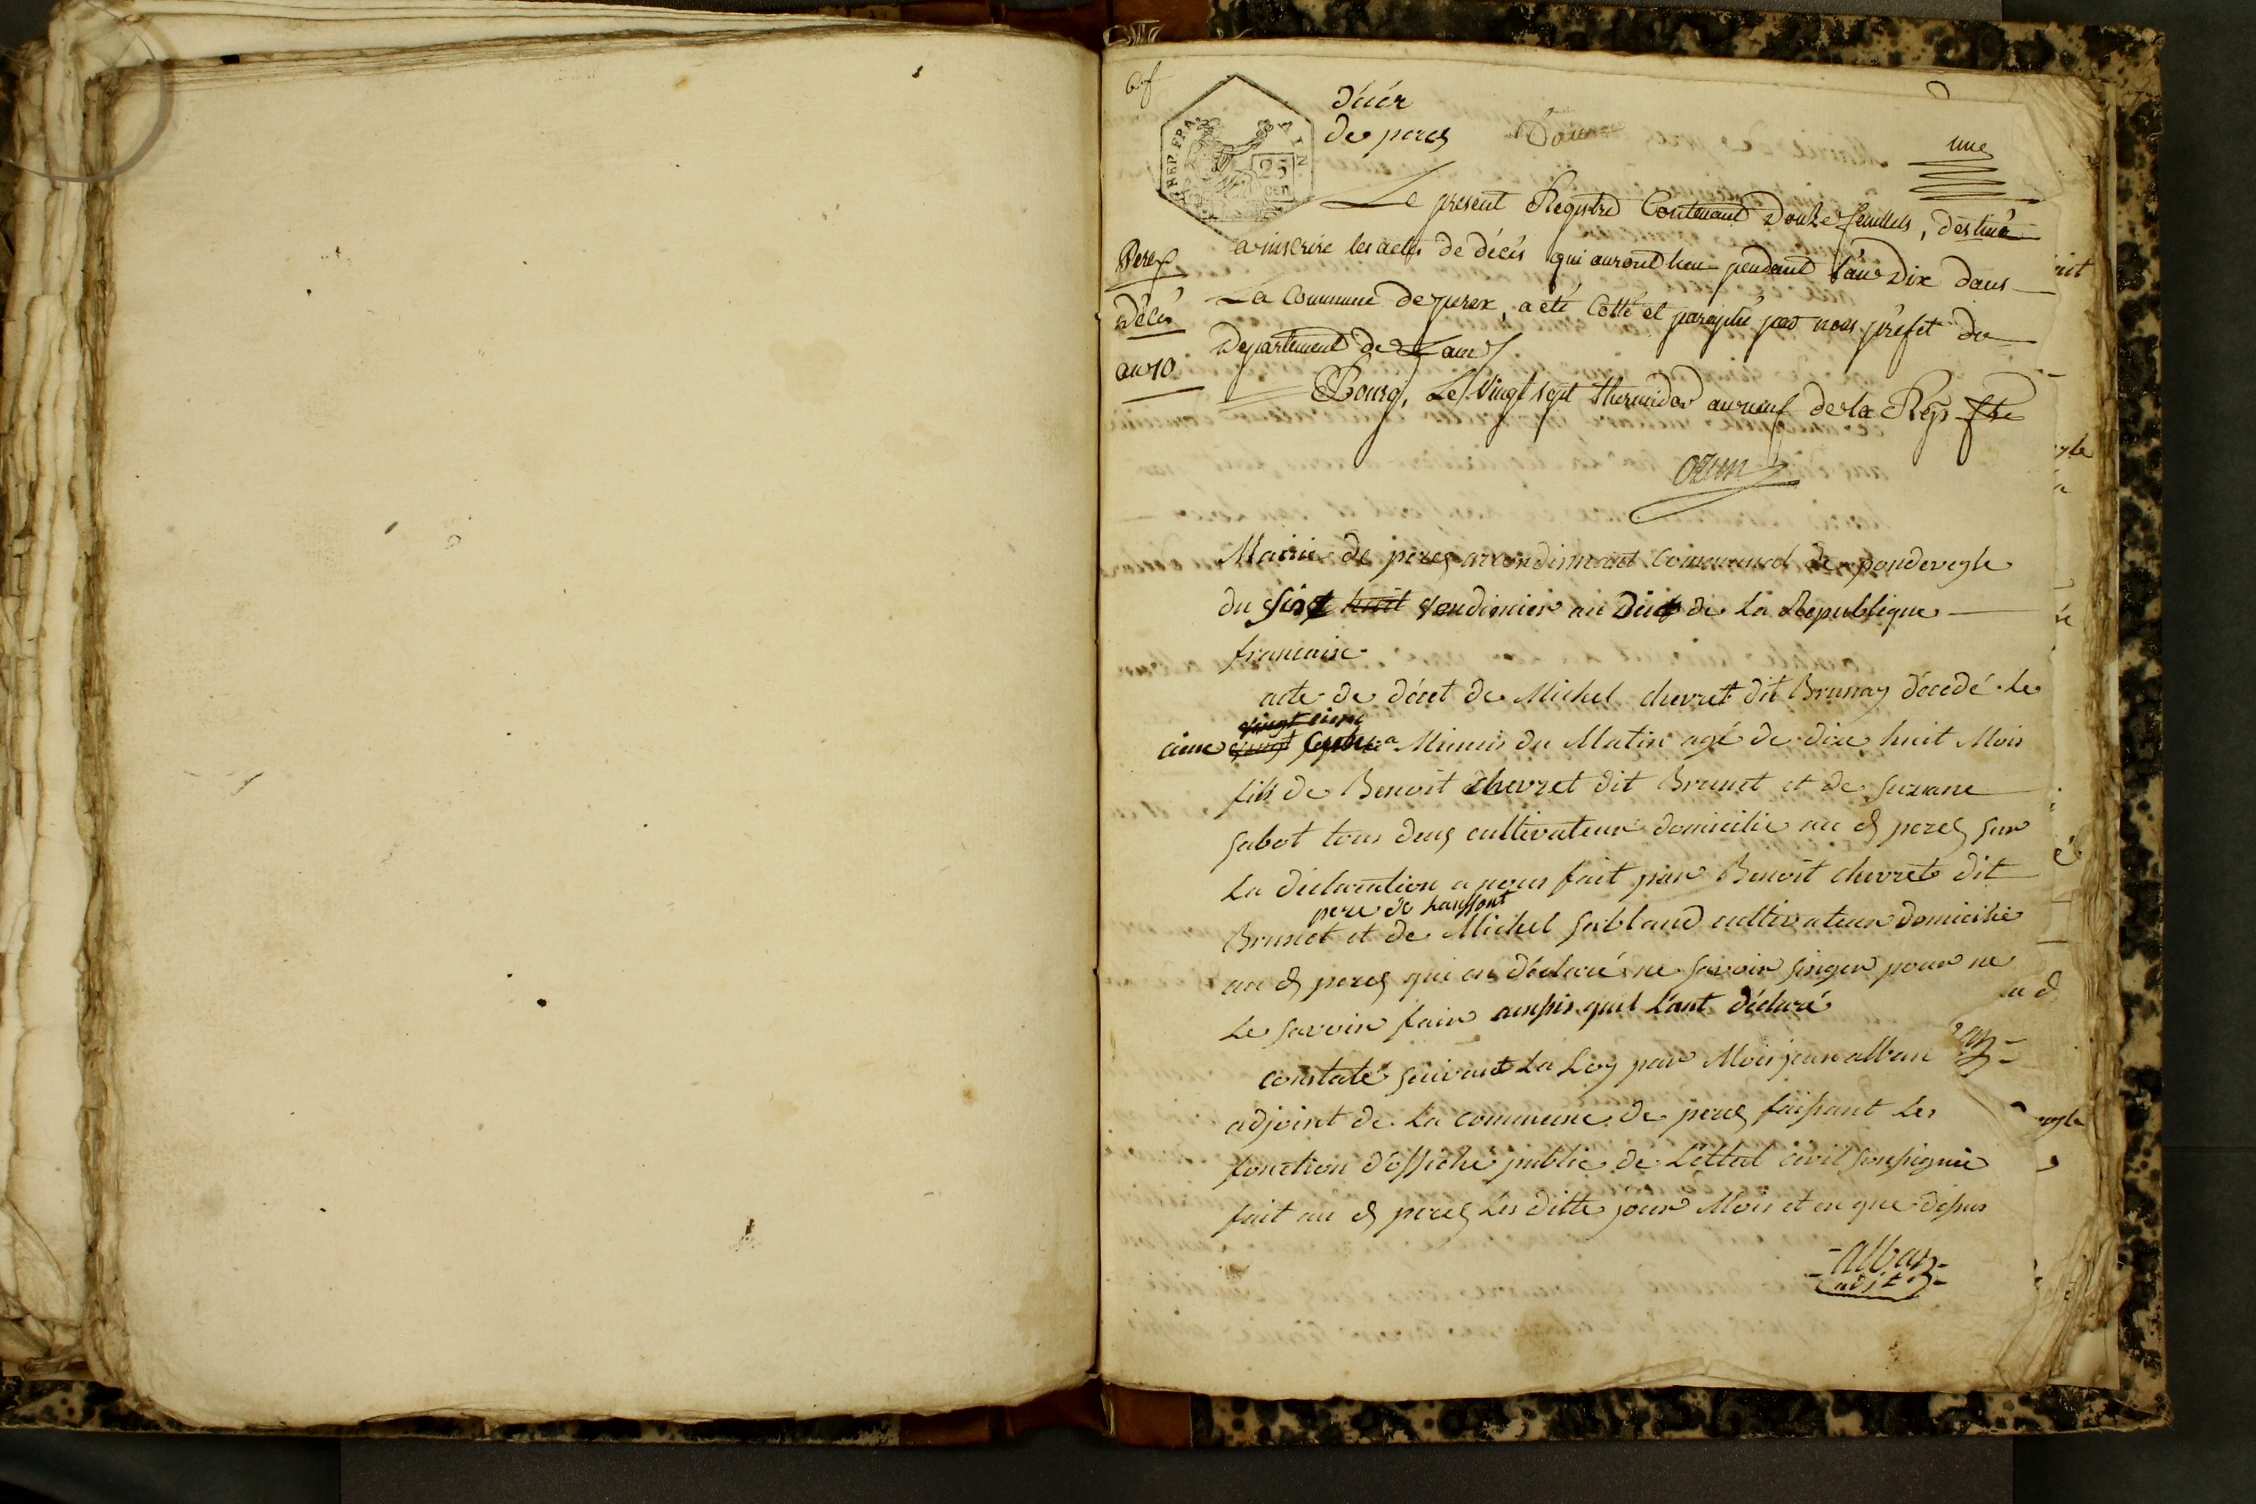 6 f
décér
de perex
une
REP. FRA.
AIN.
25
CEN
Le present Registre Contenant Douze feuillets, destiné
a inscrire les actes de décés qui auront lieu pendant l'an Dix dans
La Commune de perex, a été Cotté et paraphé par nous préfet du
Departement de L'ain
Perex
Décés
an 10
Bourg, Le Vingt sept thermidor an neuf de la Rep. fse
ozun
Mairie de perex arrondismant communal de pondevegle
du huit vendimier an Dix de La Republique
francaise
acte de décet de Michel chevret dit Brunay décedé le
vingt cinq
a Minuis du Matin agé de dix huit Mois
fils de Benoit chevret dit Brunet et de suzane
sabot tous deux cultivateur domicilie au d perex sur
La déclaration a nous fait par Benoit chevret dit
pere de lanffant
Brunet et de Michel sabland cultivateur domicilie
au d perex qui on déclaré ne savoir singer pour ne
Le savoir fair ainssis quil L'ant déclaré
constaté suivant La Loy par Moi jean alban
adjoint de La commune de perex faissant Les
fonction d'offiche public de L'ettat civil sousigniè
fait au d perex Les ditte jour Mois et an que dessus
alban
adjt